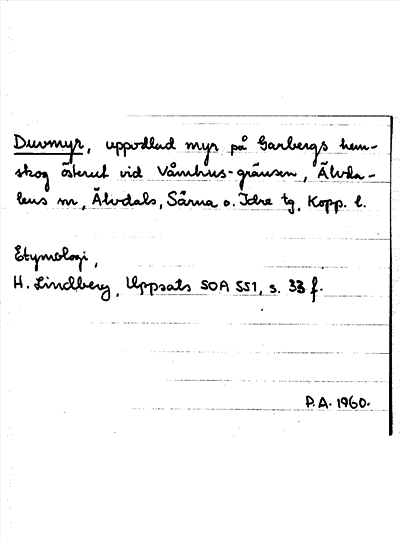 Duvmyr, uppodlad myr på Garbergs hem-
skog österut vid Våmhus-gränsen, Älvda-
lens sn, Älvdals, Särna o. Idre tg, Kopp. l.
Etymologi,
H. Lindberg, Uppsats SOA 551, s. 33 f.
P.A. 1960.